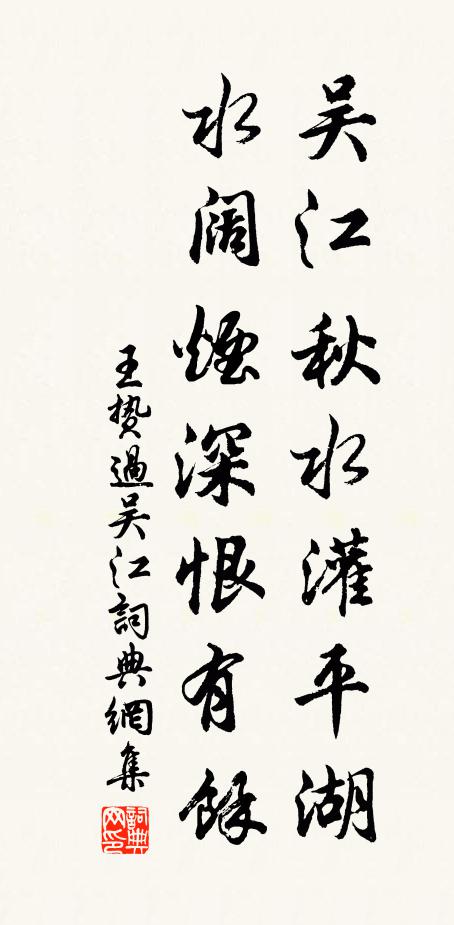 吴江秋水灌平湖
水阔煙深恨有餘
王贽過吴江詞典網集
詞典网印